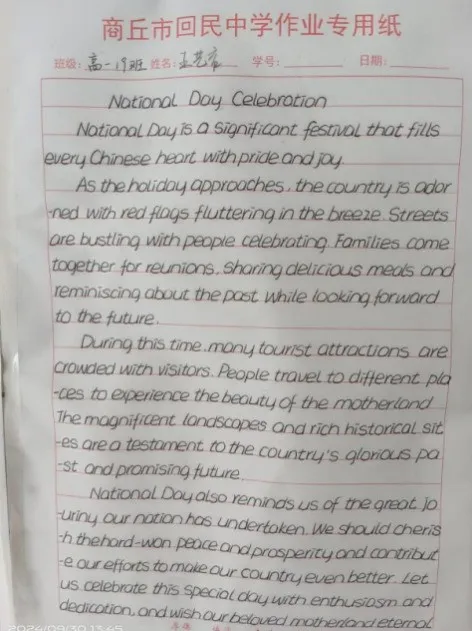 商丘市回民中学作业专用纸
班级: 高一19班 姓名: 学号: 日期:
National Day Celebration
National Day is a significant festival that fills
every Chinese heart with pride and joy.
As the holiday approaches, the country is ador
-ned with red flags fluttering in the breeze. Streets
are bustling with people celebrating. Families come
together for reunions, sharing delicious meals and
reminiscing about the past while looking forward
to the future.
During this time, many tourist attractions are
crowded with visitors. People travel to different pla
-ces to experience the beauty of the motherland.
The magnificent landscapes and rich historical sit
-es are a testament to the country's glorious pa
-st and promising future.
National Day also reminds us of the great jo
-uriny our nation has undertaken. We should cheris
-h the hard-won peace and prosperity and contribut
-e our efforts to make our country even better. Let
us celebrate this special day with enthusiasm and
dedication, and wish our beloved motherland eternal
2024/09/30 13:45